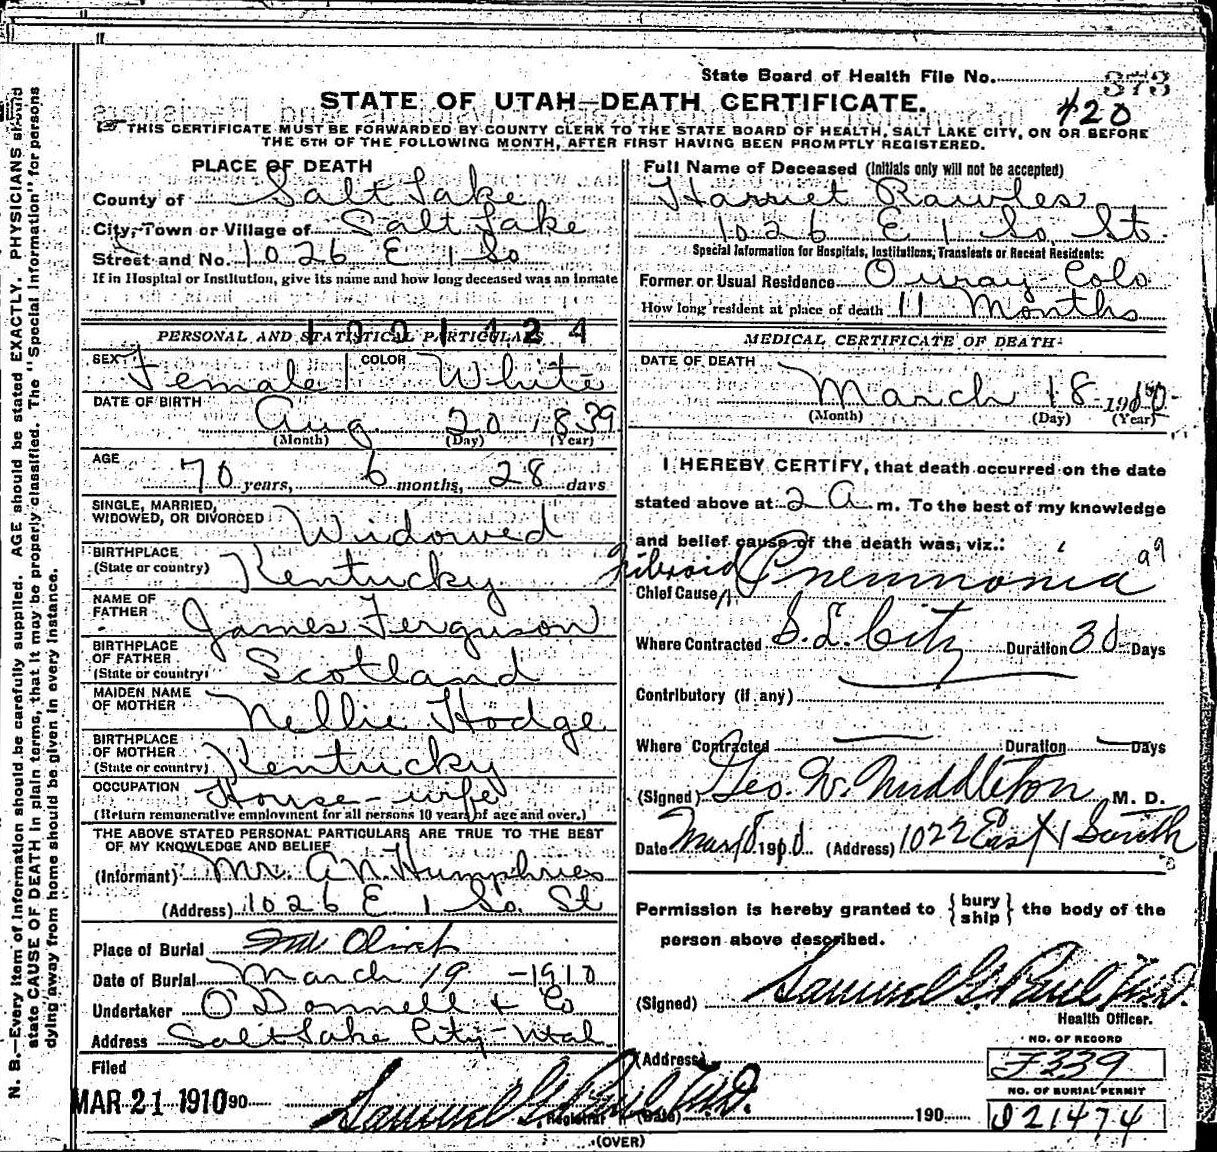 State Board of Health File No. 373
420
STATE OF UTAH—DEATH CERTIFICATE.
THIS CERTIFICATE MUST BE FORWARDED BY COUNTY CLERK TO THE STATE BOARD OF HEALTH, SALT LAKE CITY, ON OR BEFORE
THE 5TH OF THE FOLLOWING MONTH, AFTER FIRST HAVING BEEN PROMPTLY REGISTERED.
N. B.—Every item of information should be carefully supplied. AGE should be stated EXACTLY. PHYSICIANS should
state CAUSE OF DEATH in plain terms, that it may be properly classified. The "Special Information" for persons
dying away from home should be given in every instance.
PLACE OF DEATH
County of Salt Lake
City, Town or Village of Salt Lake
Street and No. 1026 E 1 So
If in Hospital or Institution, give its name and how long deceased was an inmate
1001424
PERSONAL AND STATISTICAL PARTICULARS
SEX Female COLOR White
DATE OF BIRTH Aug 20 1839
(Month) (Day) (Year)
AGE
70 years, 6 months, 28 days
SINGLE, MARRIED,
WIDOWED, OR DIVORCED Widowed
BIRTHPLACE
(State or country) Kentucky
NAME OF
FATHER James Ferguson
BIRTHPLACE
OF FATHER
(State or country) Scotland
MAIDEN NAME
OF MOTHER Nellie Hodge
BIRTHPLACE
OF MOTHER
(State or country) Kentucky
OCCUPATION House-wife
(Return remunerative employment for all persons 10 years of age and over.)
THE ABOVE STATED PERSONAL PARTICULARS ARE TRUE TO THE BEST
OF MY KNOWLEDGE AND BELIEF
(Informant) Mr. A N Humphries
(Address) 1026 E 1 So. St
Place of Burial Mt Olivet
Date of Burial March 19 - 1910
Undertaker O'Donnell & Co
Address Salt Lake City - Utah
Filed
MAR 21 1910 90 Samuel G. Paul M.D.
Registrar
Full Name of Deceased (Initials only will not be accepted)
Harriet Rawles
1026 E 1 So. St.
Special Information for Hospitals, Institutions, Transients or Recent Residents:
Former or Usual Residence Ouray Colo
How long resident at place of death 11 Months
MEDICAL CERTIFICATE OF DEATH
DATE OF DEATH
March 18 1910
(Month) (Day) (Year)
I HEREBY CERTIFY, that death occurred on the date
stated above at 2 A. m. To the best of my knowledge
and belief cause of the death was, viz.:
Chief Cause Fibroid Pnemmonia 99
Where Contracted S. L. City Duration 30 Days
Contributory (if any)
Where Contracted Duration Days
(Signed) Geo. W. Middleton M. D.
Date Mar 18 1910 (Address) 1022 East 1 South
Permission is hereby granted to { bury ship } the body of the
person above described.
(Signed) Samuel G. Paul M.D.
Health Officer.
(Address)
(Date) 190
NO. OF RECORD
F339
NO. OF BURIAL PERMIT
J21474
(OVER)